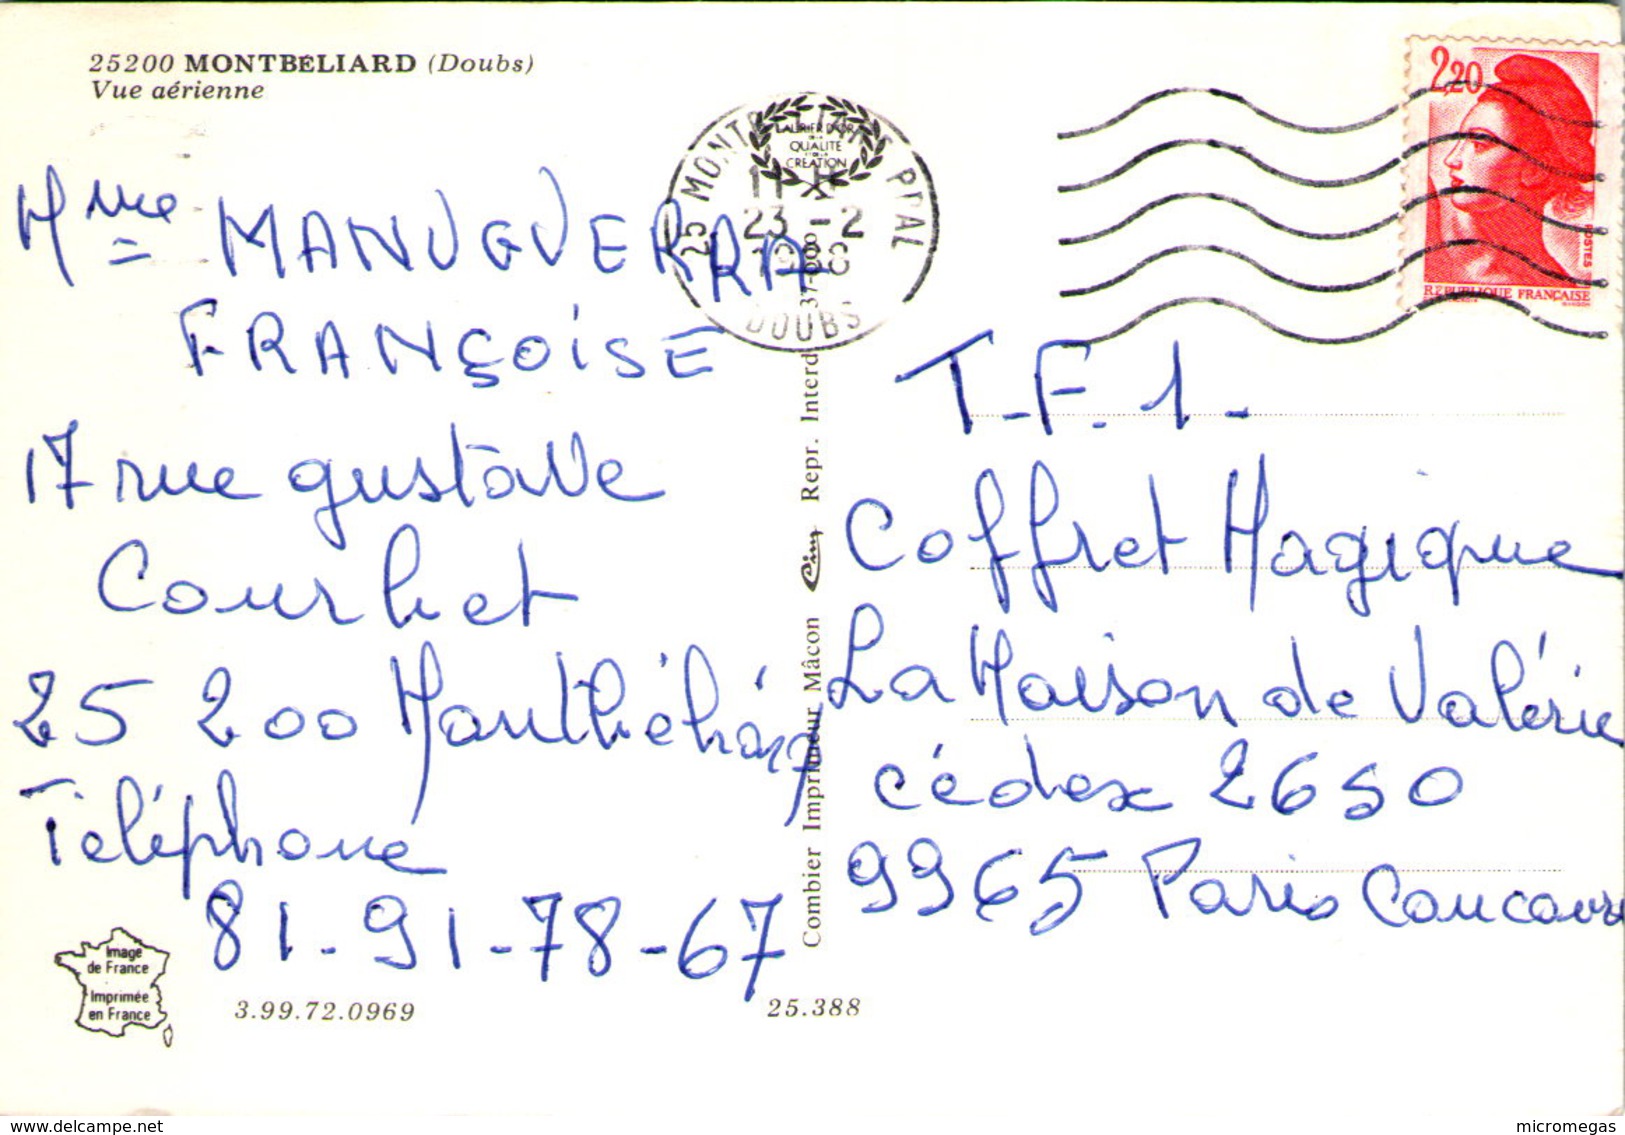 25200 MONTBÉLIARD (Doubs)
Vue aérienne
Mme MANUGUERRA
FRANÇOISE
17 rue gustave
Courbet
25 200 Montbéliard
Téléphone
81-91-78-67
Image
de France
Imprimée
en France
3.99.72.0969
25.388
Combier Imprimeur Mâcon Cim Repr. Interd
37-008
LAURIER D'OR
DE LA
QUALITÉ
ET DE LA
CRÉATION
25 MONTBELIARD PPAL
11 H
23 -2
1988
DOUBS
2,20
POSTES
RÉPUBLIQUE FRANÇAISE
T.F.1-
Coffret Magique
La Maison de Valérie
cédex 2650
9965 Paris Concours
delcampe.net
micromegas